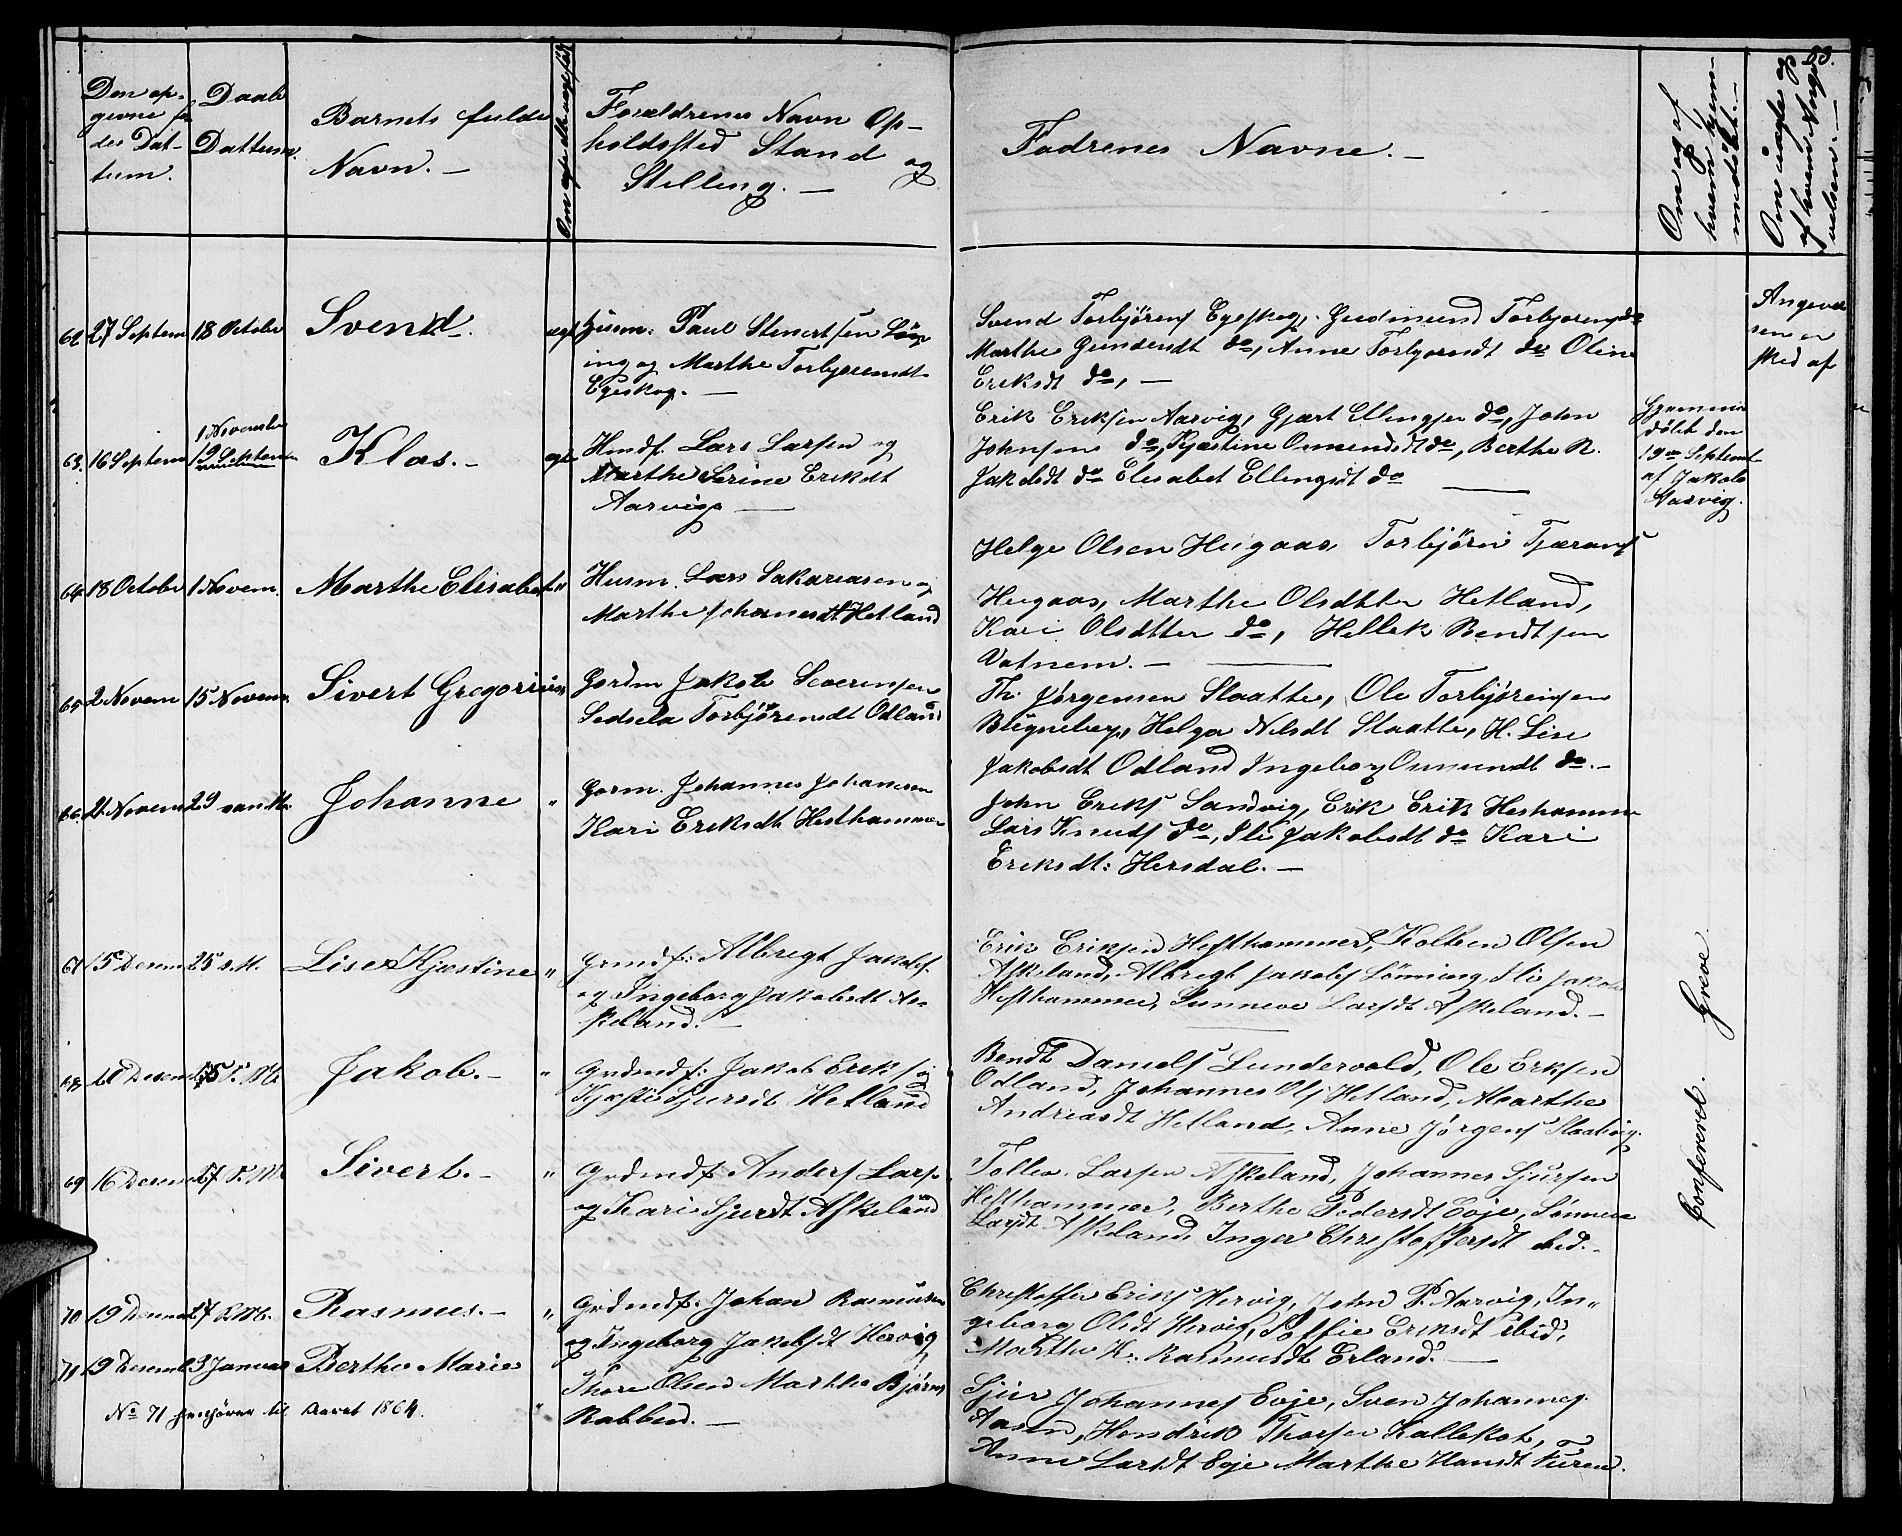 53.
Den op-
givne fø
des Dat-
tum.
Daabs
Dattum.
Barnets fulde
Navn. —
Forældrenes Navn Op-
holdssted Stand og
Stilling. —
Fadrenes Navne. —
Om og af
hvem hjem-
medøbt. —
Om og
af hvem Angi-
velsen. —
62. 27 Septem 18 October Svend. ægt Husm: Paul Stenert sen
ing og Marthe Torbjørnsdt
Egeskog. —
Svend Torbjørens Egeskog, Gudmund Torbjorens do
Marthe Gundersdt do, Anne Torbjorndt do Oline
Eriksdt do, —
Angivel
sen er
sked af
63. 16 Septem 1 November
19 Septem Klas. — ægt Hmdf. Lars Larsen og
Marthe Serine Eriksdt
Aarvig —
Erik Eriksen Aarvig, Gjært Ellingsen do, John
Johnsen do, Kjæstine Osmundsdt do, Berthe R.
Jakobsdt do Elisabet Ellingsdt do —
Hjemme
døbt den
19de Septemb
af Jakob
Aarvig.
64. 18 October 1 Novem. Marthe Elisabet " Husm. Lars Sakariasen og
Marthe Johannesdt Hetland
Helge Olsen Hegaas, Torbjörn Tjærans
Hegaas, Marthe Olsdtter Hetland,
Kari Olsdtter do, Hellek Bendtsen
Vatnem. —
65. 2 Novem 15 Novem. Sivert Gregorius Gordm Jakob Severinsen
Sedsela Torbjørensdt Odland
Th. Jørgensen Slaatte, Ole Torbjørensen
Bygneberg, Helga Nilsdt Slaatte, H. Lise
Jakobsdt Odland Ingeborg Osmundt do. —
66. 21 Novem 29 Johanne " Gorm. Johannes Johannesen
Kari Eriksdt Hesthammer
John Eriks Sandvig, Erik Erik Heshammer
Lars Knuds do, Ili Jakobsdt do Kari
Eriksdt: Hersdal. —
67 15 Desem 25 s. M. Lise Kjæstine " Grmdf: Albregt Jakobs.
og Ingeborg Jakobsdt As-
keland. —
Erik Eriksen Hesthammer, Kolben Olsen
Askeland, Albregt Jakobs Lønning, Ili Jakobs
Hesthammer, Sunneve Larsdt Askeland. —
68. Desem 25 s. M. Jakob. — " Grdmdf: Jakob Erik s og
Kjæsti Sjursdt Hetland
Bendt Daniels Lundervold, Ole Eriksen
Odland, Johannes Ols Hetland, Marthe
Andreasdt Hetland, Anne Jørgens
69 16 Desem 27 s. M. Sivert. — " Grdmdf. Anders Lars
og Kari Sjurdt Askeland
Tollev Larsen Askeland, Johannes Sjursen
Hesthammer, Berthe Pedersdt Evje, Sønneve
Larsdt Askeland, Inger Christoffersdt ibid. —
70 19 Desem 27 s. M. Rasmus. — " Grdmdf. Johan Rasmusen
og Ingeborg Jakobsdt Hervig
Christoffer Eriks Hervig, John P. Aarvig, In-
geborg Olsdt Hervig, Soffie Eriksdt ibid,
Marthe K. Rasmusdt Erland. —
71 9 Desemb 3 Januar Berthe Marie Thore Olsen Marthe Bjørns
No 71 henhører til Aaret 1864. " Rabben. —
Sjur Johannes Evje, Sven Johannes.
Aasen, Hendrik Thorsen Kallekot,
Anne Larsdt Evje Marthe Hansdt Furen.
Confereret. Greve.